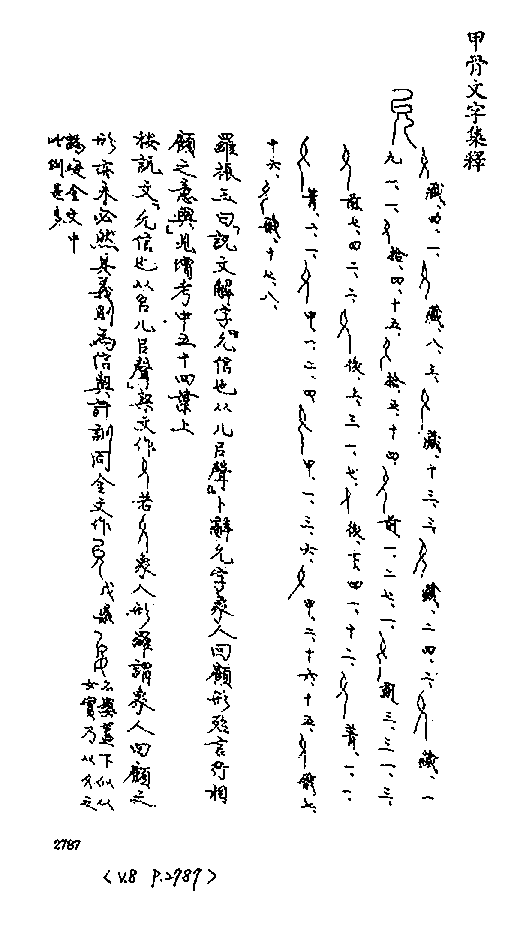 甲骨文字集釋
藏、四、一、藏、八、三、藏、十三、三、藏、二四、二、藏、一
九一、一、拾、四、十五、拾、五、十四、前、一、二七、一、前、三、三一、三、
前、七、四二、二、後、上、三一、七、後、下、四一、十二、菁、一、一、
菁、六、一、甲、一、二、四、甲、一、三、六、甲、二、十六、十五、戩、七、
十六、戩、十七、八、
羅振玉曰「說文解字『允信也从儿㠯聲』卜辭允字象人回顧形殆言行相
顧之意與」見增考中五十四葉上
按說文「允信也从㠯儿㠯聲」契文作若象人形羅謂象人回顧之
形亦未必然其義則為信與許訓同金文作
女實乃从夂之
譌變金文中
此例甚多
2787
〈V.8 P.2787〉